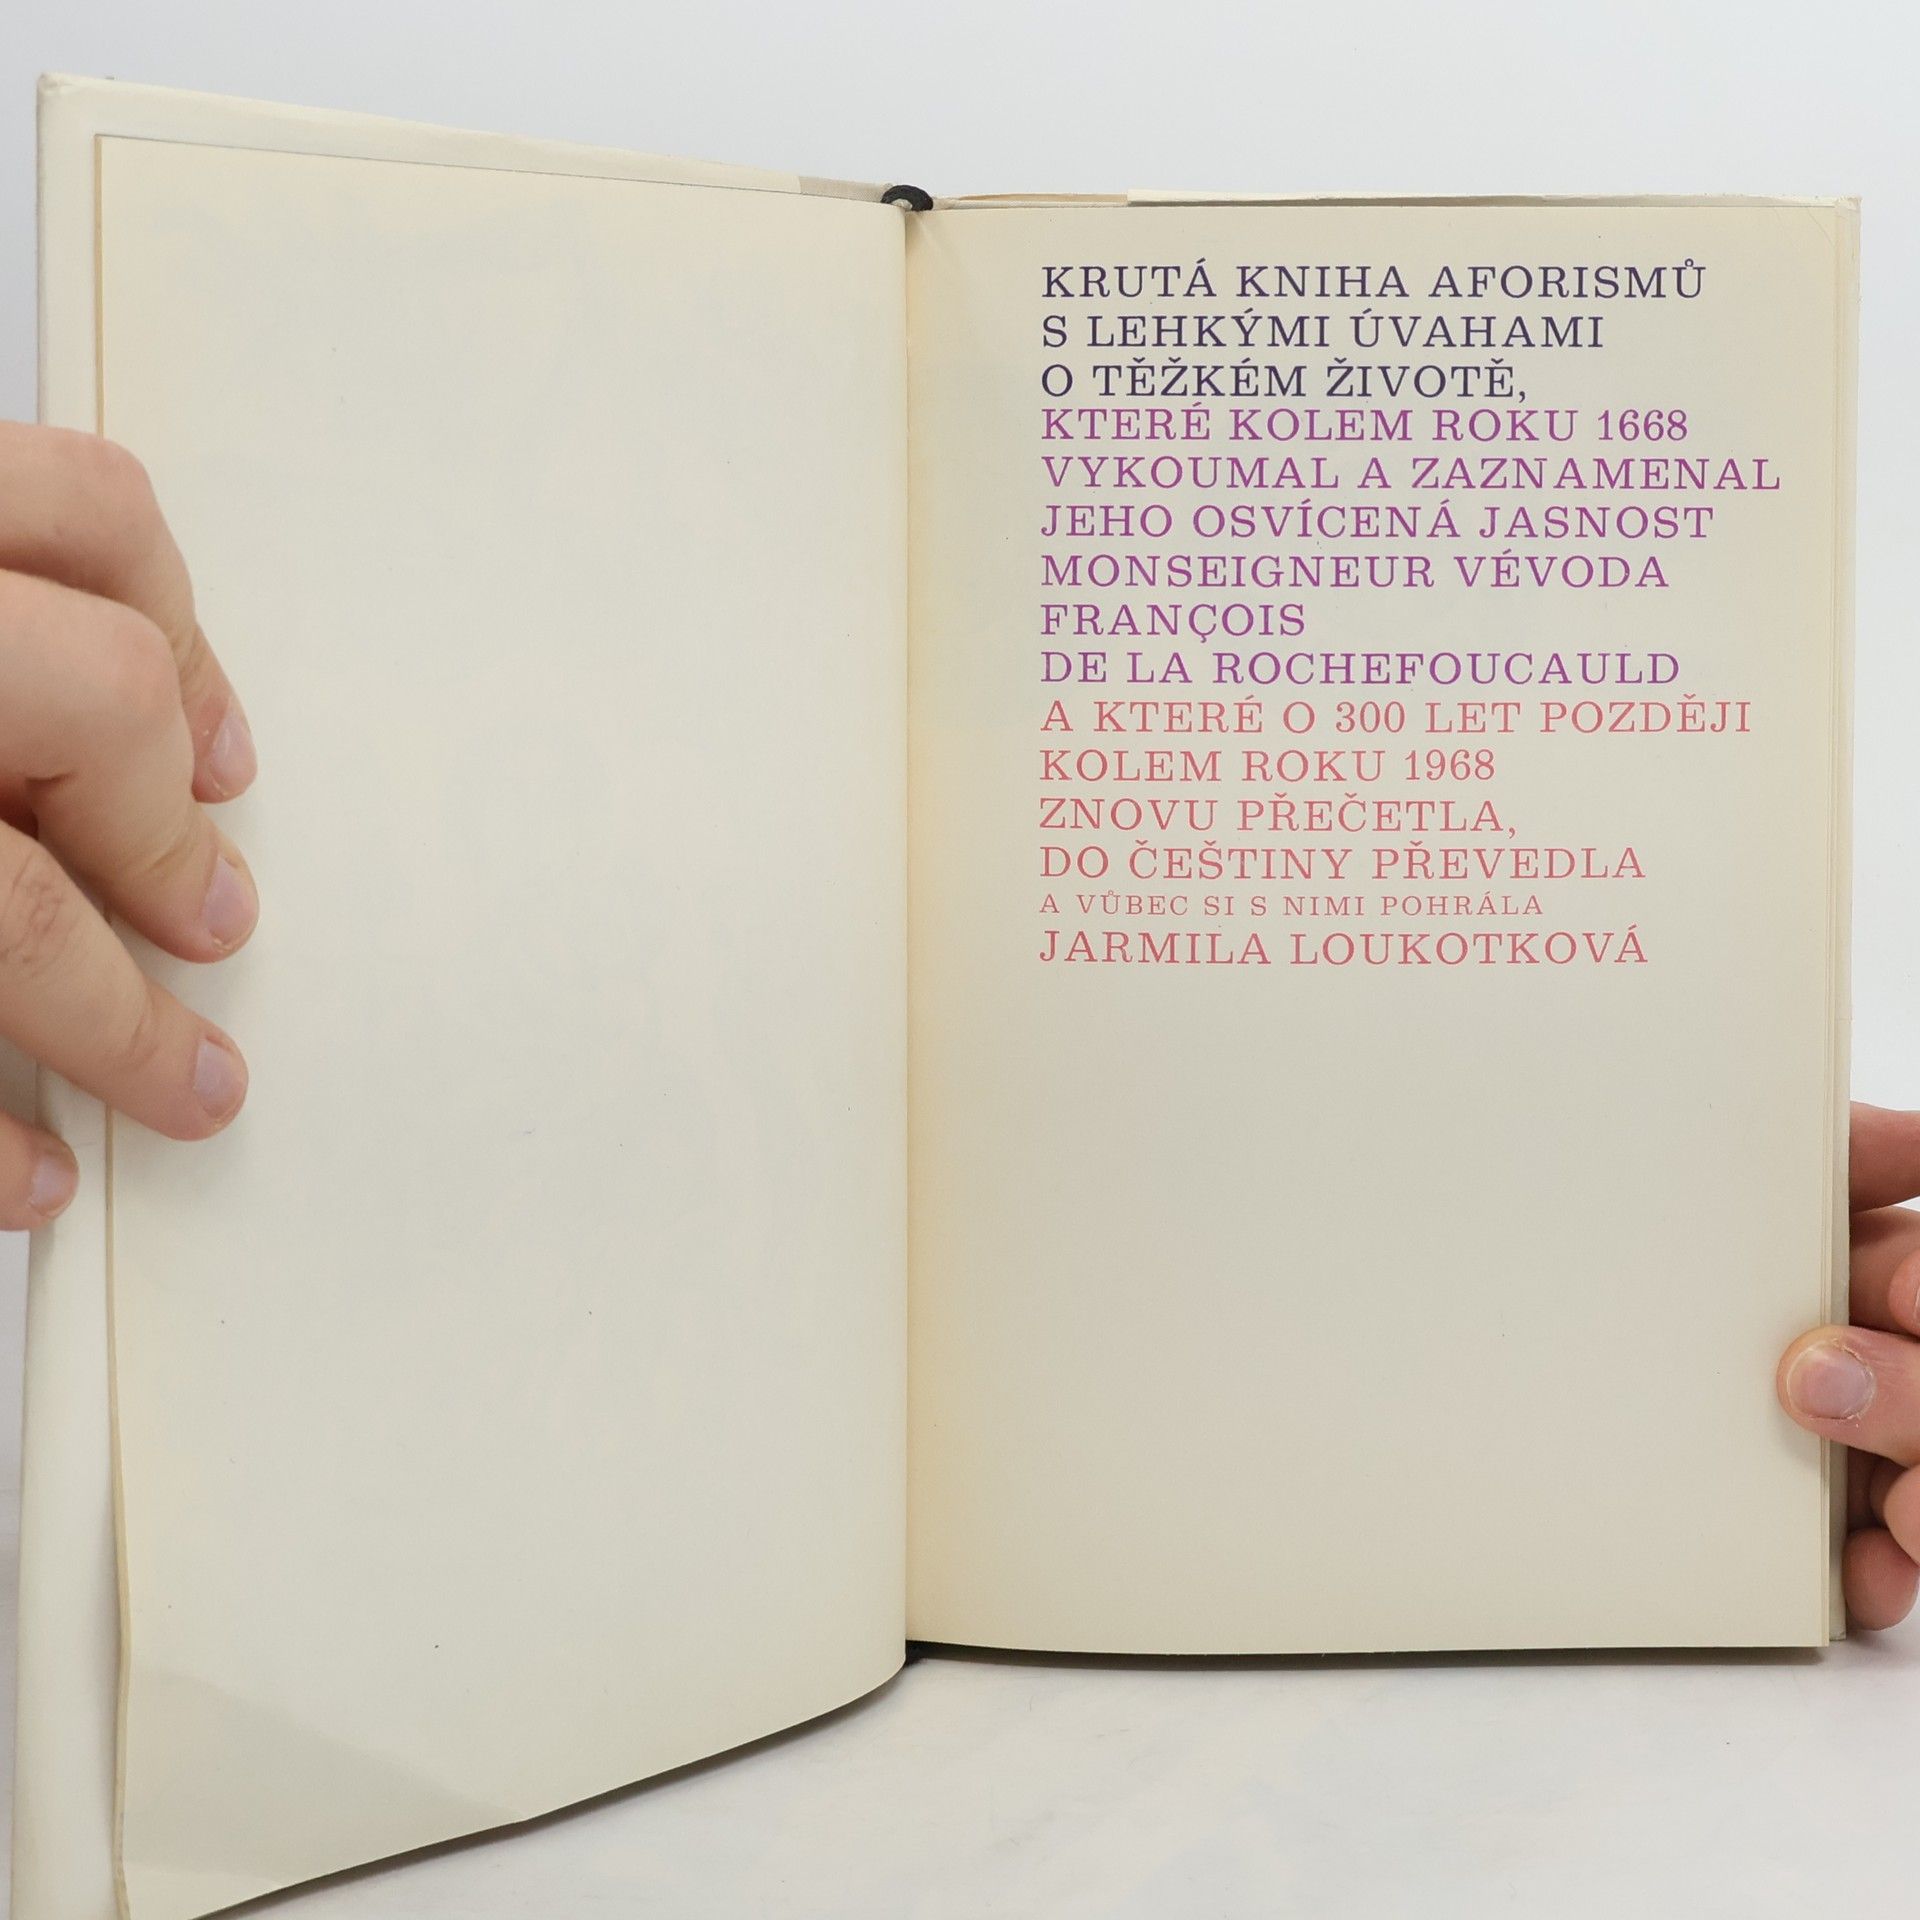 KRUTÁ KNIHA AFORISMŮ
S LEHKÝMI ÚVAHAMI
O TĚŽKÉM ŽIVOTĚ,
KTERÉ KOLEM ROKU 1668
VYKOUMAL A ZAZNAMENAL
JEHO OSVÍCENÁ JASNOST
MONSEIGNEUR VÉVODA
FRANÇOIS
DE LA ROCHEFOUCAULD
A KTERÉ O 300 LET POZDĚJI
KOLEM ROKU 1968
ZNOVU PŘEČETLA,
DO ČEŠTINY PŘEVEDLA
A VŮBEC SI S NIMI POHRÁLA
JARMILA LOUKOTKOVÁ